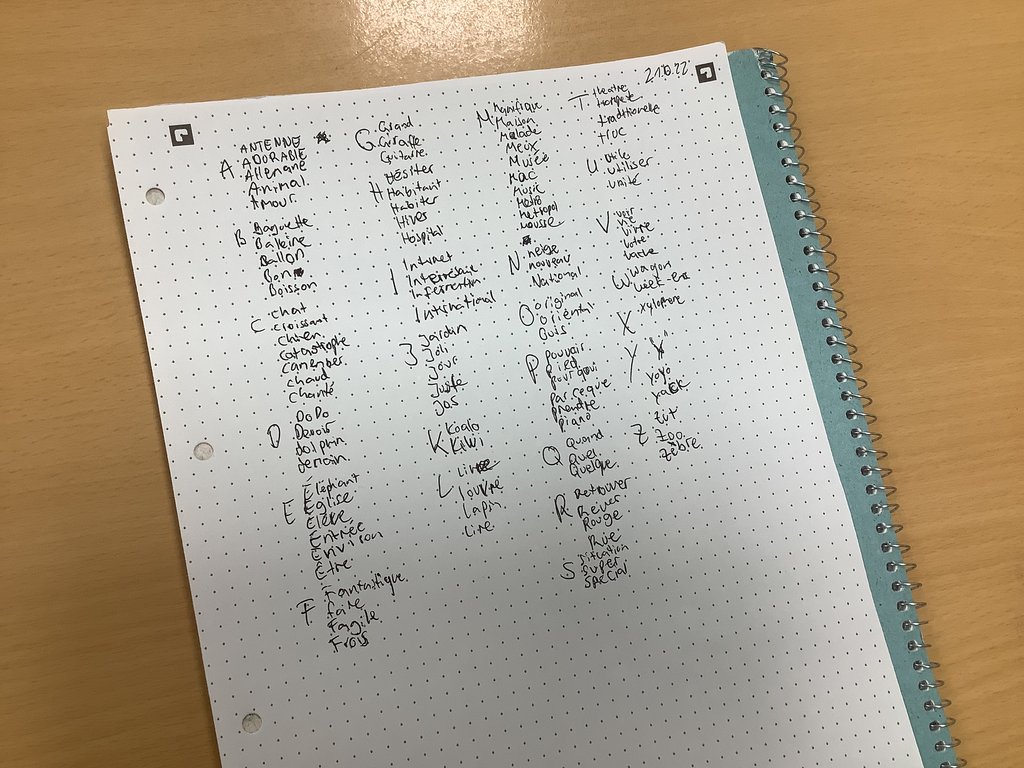 21.10.22
ANTENNE
A. ADORABLE
Allemagne
Animal.
Amour.
B Baguette
Balleine
Ballon
Bon
Boisson
chat
C croissant
Chien
Catastrophe
chaud
Charité
DoDo
D Devoir
dolphin
demain.
Éléphant
E Église
Élève
Entrée
Envision
Être
F Fantastique.
Faire
Fragile
Frois
Grand
G Giraffe
Guitare
Hésiter
H Habitant
Habiter
Hives
Hospital
I Internet
International
J Jardin
Joli
Jour
Juste
Jas
K Koala
Kiwi
L Livre
Louvre
Lapin
Lire
M Magnifique
Maison
Malade
Meux
Musée
Mac
Music
Metro
Metropol
Mousse
N neige
nouveau
National
O original
oriental
Ouis
P Pouvoir
Pied
pourquoi
parceque
prendre
piano
Q Quand
Quel
Quelque
R Retrouver
Rever
Rouge
Rue
S Situation
Super
Special
T. theatre
trompete
traditionelle
truc
U. utile
utiliser
unité
V voir
vie
vivre
votre
vache
W wagon
week-end
X xylophone
Y
yoyo
yack
Z zut
zoo
zèbre.